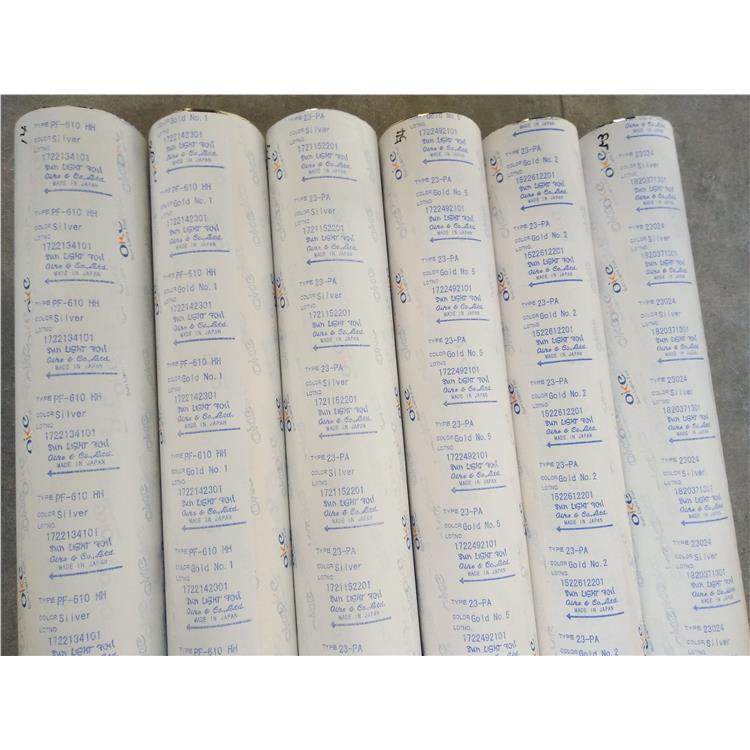 TYPE PF-610 HH
COLOR Silver
LOTNO
1722134101
Sun LIGHT FOIL
Oike & Co.,Ltd.
MADE IN JAPAN
TYPE PF-610 HH
COLOR Silver
LOTNO
1722134101
Sun LIGHT FOIL
Oike & Co.,Ltd.
MADE IN JAPAN
TYPE PF-610 HH
COLOR Silver
LOTNO
1722134101
Sun LIGHT FOIL
Oike & Co.,Ltd.
MADE IN JAPAN
TYPE PF-610 HH
COLOR Silver
LOTNO
1722134101
Sun LIGHT FOIL
Oike & Co.,Ltd.
MADE IN JAPAN
TYPE PF-610 HH
COLOR Silver
LOTNO
1722134101
Sun LIGHT FOIL
Oike & Co.,Ltd.
MADE IN JAPAN
TYPE PF-610 HH
COLOR Silver
LOTNO
1722134101
Sun LIGHT FOIL
COLOR Gold No.1
LOTNO
1722142301
Sun LIGHT FOIL
Oike & Co.,Ltd.
MADE IN JAPAN
TYPE PF-610 HH
COLOR Gold No.1
LOTNO
1722142301
Sun LIGHT FOIL
Oike & Co.,Ltd.
MADE IN JAPAN
TYPE PF-610 HH
COLOR Gold No.1
LOTNO
1722142301
Sun LIGHT FOIL
Oike & Co.,Ltd.
MADE IN JAPAN
TYPE PF-610 HH
COLOR Gold No.1
LOTNO
1722142301
Sun LIGHT FOIL
Oike & Co.,Ltd.
MADE IN JAPAN
TYPE PF-610 HH
COLOR Gold No.1
LOTNO
1722142301
Sun LIGHT FOIL
Oike & Co.,Ltd.
MADE IN JAPAN
TYPE PF-610 HH
COLOR Gold No.1
LOTNO
1722142301
Sun LIGHT FOIL
Oike & Co.,Ltd.
MADE IN JAPAN
TYPE PF-610 HH
TYPE 23-PA
COLOR Silver
LOTNO
1721152201
Sun LIGHT FOIL
Oike & Co.,Ltd.
MADE IN JAPAN
TYPE 23-PA
COLOR Silver
LOTNO
1721152201
Sun LIGHT FOIL
Oike & Co.,Ltd.
MADE IN JAPAN
TYPE 23-PA
COLOR Silver
LOTNO
1721152201
Sun LIGHT FOIL
Oike & Co.,Ltd.
MADE IN JAPAN
TYPE 23-PA
COLOR Silver
LOTNO
1721152201
Sun LIGHT FOIL
Oike & Co.,Ltd.
MADE IN JAPAN
TYPE 23-PA
COLOR Silver
LOTNO
1721152201
Sun LIGHT FOIL
Oike & Co.,Ltd.
MADE IN JAPAN
TYPE 23-PA
COLOR Silver
LOTNO
1721152201
Sun LIGHT FOIL
Oike & Co.,Ltd.
MADE IN JAPAN
TYPE 23-PA
COLOR Gold No.5
LOTNO
1722492101
Sun LIGHT FOIL
Oike & Co.,Ltd.
MADE IN JAPAN
TYPE 23-PA
COLOR Gold No.5
LOTNO
1722492101
Sun LIGHT FOIL
Oike & Co.,Ltd.
MADE IN JAPAN
TYPE 23-PA
COLOR Gold No.5
LOTNO
1722492101
Sun LIGHT FOIL
Oike & Co.,Ltd.
MADE IN JAPAN
TYPE 23-PA
COLOR Gold No.5
LOTNO
1722492101
Sun LIGHT FOIL
Oike & Co.,Ltd.
MADE IN JAPAN
TYPE 23-PA
COLOR Gold No.5
LOTNO
1722492101
Sun LIGHT FOIL
Oike & Co.,Ltd.
MADE IN JAPAN
TYPE 23-PA
COLOR Gold No.5
LOTNO
1722492101
Sun LIGHT FOIL
Oike & Co.,Ltd.
MADE IN JAPAN
TYPE 23-PA
COLOR Gold No.5
LOTNO
1722492101
Sun LIGHT FOIL
MADE IN JAPAN
TYPE 23-PA
COLOR Gold No.2
LOTNO
1522612201
Sun LIGHT FOIL
Oike & Co.,Ltd.
MADE IN JAPAN
TYPE 23-PA
COLOR Gold No.2
LOTNO
1522612201
Sun LIGHT FOIL
Oike & Co.,Ltd.
MADE IN JAPAN
TYPE 23-PA
COLOR Gold No.2
LOTNO
1522612201
Sun LIGHT FOIL
Oike & Co.,Ltd.
MADE IN JAPAN
TYPE 23-PA
COLOR Gold No.2
LOTNO
1522612201
Sun LIGHT FOIL
Oike & Co.,Ltd.
MADE IN JAPAN
TYPE 23-PA
COLOR Gold No.2
LOTNO
1522612201
Sun LIGHT FOIL
Oike & Co.,Ltd.
MADE IN JAPAN
TYPE 23-PA
COLOR Gold No.2
LOTNO
1522612201
Sun LIGHT FOIL
Oike & Co.,Ltd.
MADE IN JAPAN
TYPE 23-PA
COLOR Gold No.2
Oike & Co.,Ltd.
MADE IN JAPAN
TYPE 23024
COLOR Silver
LOTNO
1820371301
Sun LIGHT FOIL
Oike & Co.,Ltd.
MADE IN JAPAN
TYPE 23024
COLOR Silver
LOTNO
1820371301
Sun LIGHT FOIL
Oike & Co.,Ltd.
MADE IN JAPAN
TYPE 23024
COLOR Silver
LOTNO
1820371301
Sun LIGHT FOIL
Oike & Co.,Ltd.
MADE IN JAPAN
TYPE 23024
COLOR Silver
LOTNO
1820371301
Sun LIGHT FOIL
Oike & Co.,Ltd.
MADE IN JAPAN
TYPE 23024
COLOR Silver
LOTNO
1820371301
Sun LIGHT FOIL
Oike & Co.,Ltd.
MADE IN JAPAN
TYPE 23024
COLOR Silver
LOTNO
1820371301
Sun LIGHT FOIL
Oike & Co.,Ltd.
MADE IN JAPAN
TYPE 23024
COLOR Silver